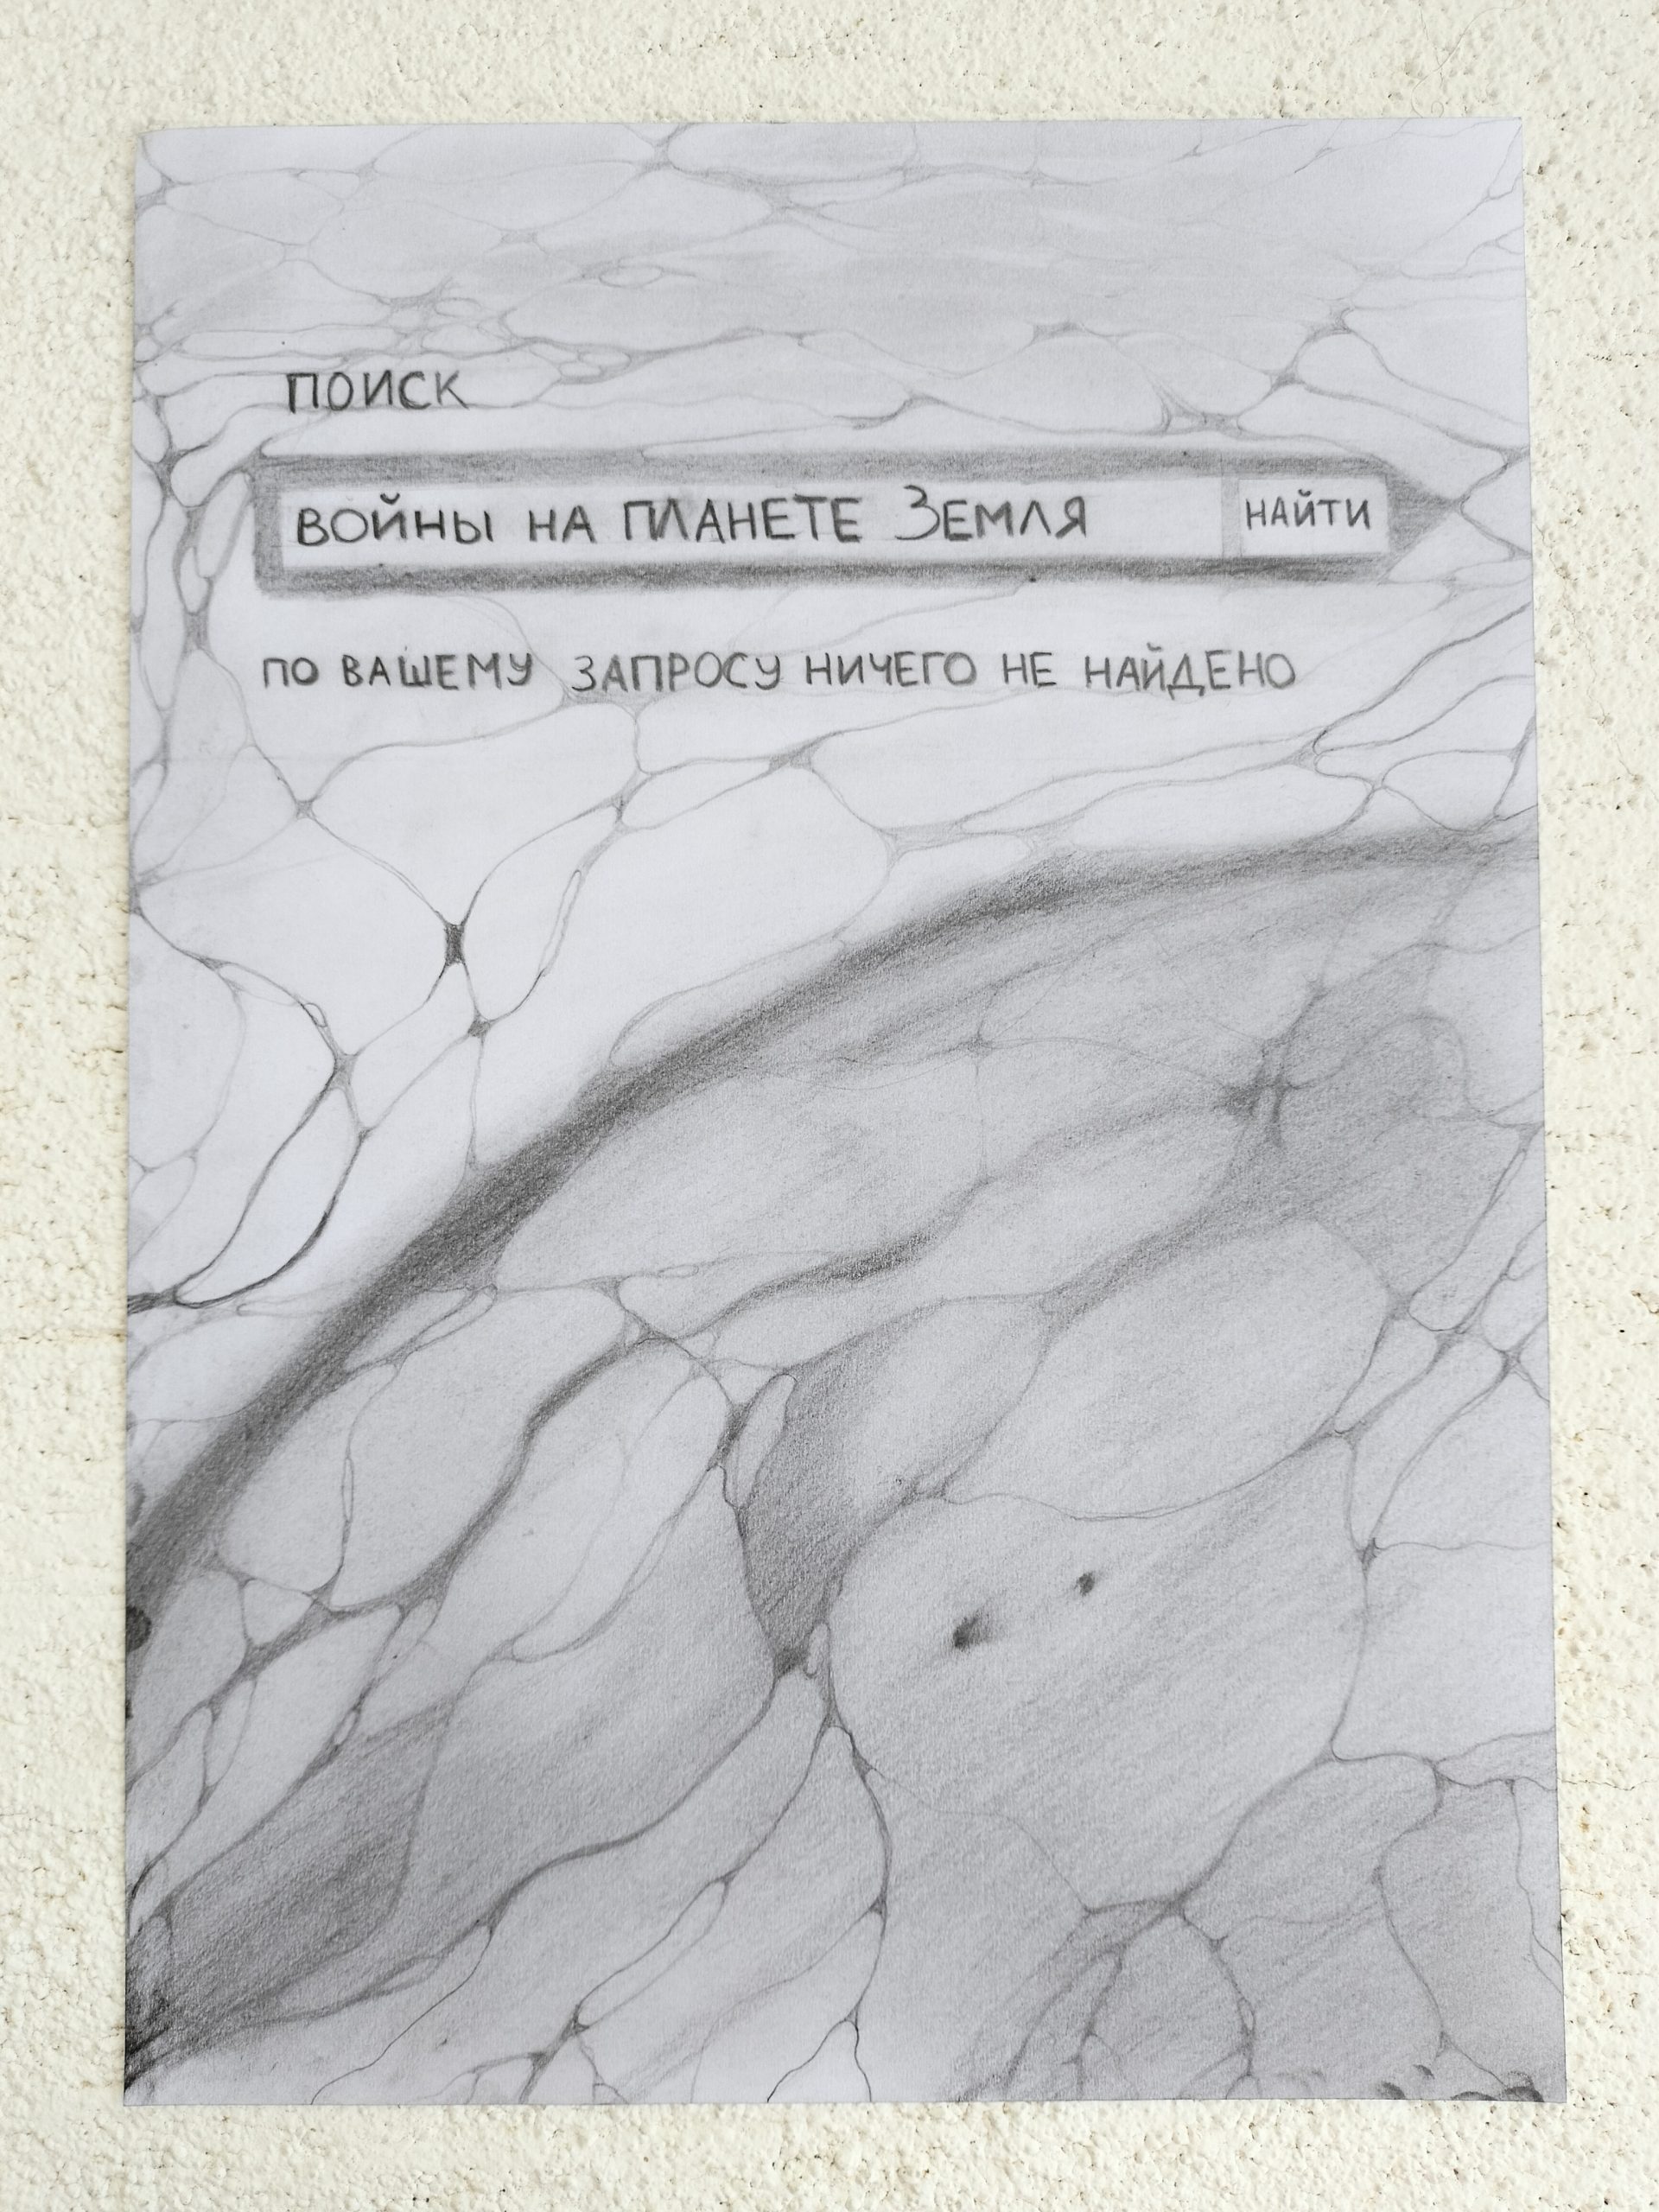 ПОИСК
ВОЙНЫ НА ПЛАНЕТЕ ЗЕМЛЯ НАЙТИ
ПО ВАШЕМУ ЗАПРОСУ НИЧЕГО НЕ НАЙДЕНО